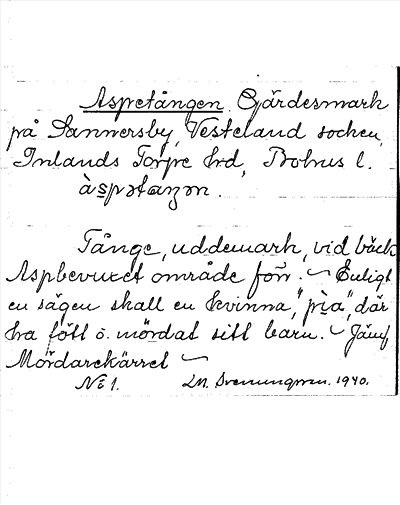 Aspetången Gärdesmark
på Sannersby, Västerland socken,
Inlands Torpe hrd, Bohus l.
àspətaŋən.
Tånge, uddemark, vid bäck
Aspbevuxet område förr. ~ Enligt
en sägen skall en kvinna, "pia", där
ha fött o. mördat sitt barn. ~ Jämf
Mördarekärret ~
No 1. Svenungsson. 1940.